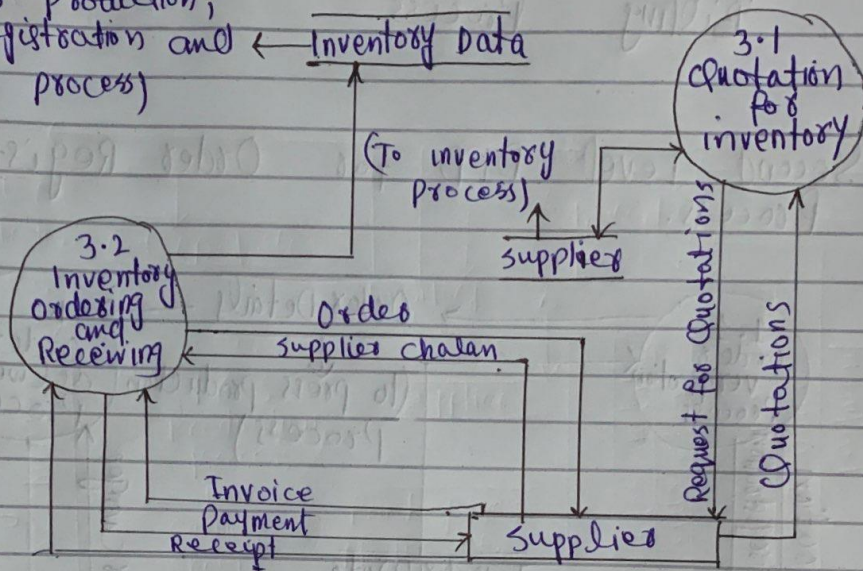 gistration and
process)
Inventory Data
3.1
Quotation
for
inventory
(To inventory
process)
supplier
3.2
Inventory
Ordering
and
Receiving
Order
Supplier chalan
Request for Quotations
Quotations
Invoice
Payment
Receipt
Supplier